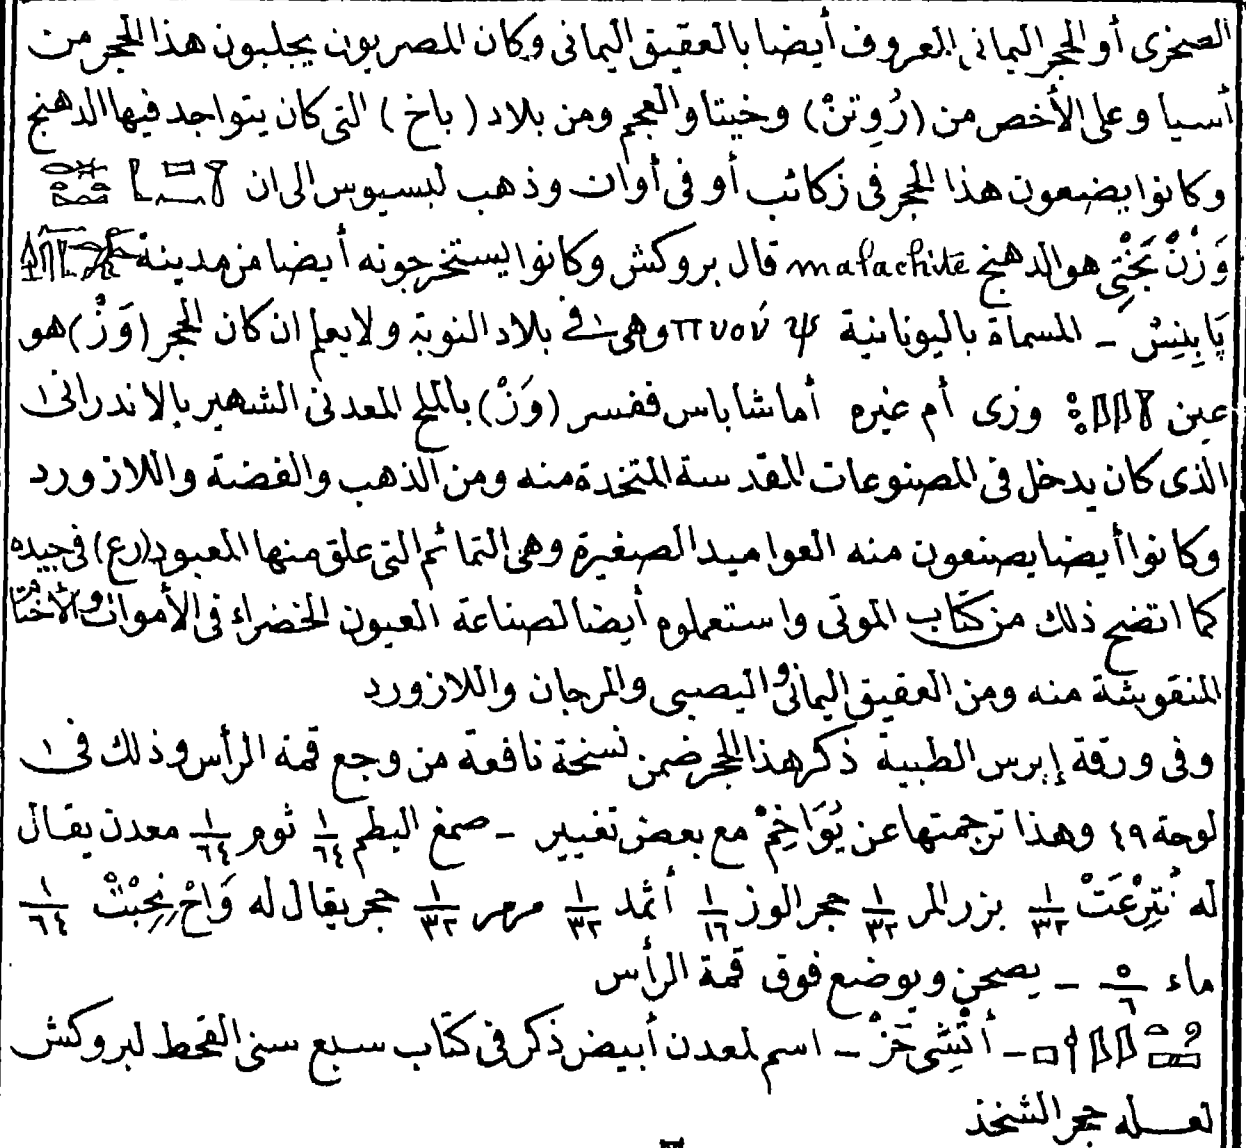 الصخرى أو الحجر اليمانى المعروف أيضا بالعقيق اليمانى وكان المصريون يجلبون هذا الحجر من
أسيا وعلى الأخص من (رُوتِنْ) وخيتا والعجم ومن بلاد (باخ) التى كان يتواجد فيها الدهنج
وكانوا يضعون هذا الحجر فى زكائب أو فى أوان وذهب لبسيوس الى ان
وَزْنْ بَخْتِى هو الدهنج malachite قال بروكش وكانوا يستخرجونه أيضا من مدينة
پَابِنِسْ - المسماة باليونانية وهى فى بلاد النوبة ولا يعلم ان كان الحجر (وَزْ) هو
عين وزى أم غيره أما شاباس ففسر (وَزْ) بالملح المعدنى الشهير بالاندرانى
الذى كان يدخل فى المصنوعات المقدسة المتخذة منه ومن الذهب والفضة واللازورد
وكانوا أيضا يصنعون منه العواميد الصغيرة وهى التمائم التى علق منها المعبود (رع) فى جيده
كما اتضح ذلك من كتاب الموتى واستعملوه أيضا لصناعة العيون الخضراء فى الأموات
المنقوشة منه ومن العقيق اليمانى واليصبى والمرجان واللازورد
وفى ورقة إبرس الطبية ذكر هذا الحجر ضمن نسخة نافعة من وجع قمة الرأس وذلك فى
لوحة ٤٩ وهذا ترجمتها عن يُوَاخِمْ مع بعض تغيير - صمغ البطم ١/٦٤ ثوم ١/٦٤ معدن يقال
له نُتِرْعَتْ ١/٣٢ بزر المر ١/٣٢ حجر الوز ١/١٦ أثمد ١/٣٢ مرمر ١/٣٢ حجر يقال له وَاحْ نِحِبْتْ ١/٦٤
ماء ٥/٦ - يصحن ويوضع فوق قمة الرأس
- أَنْشِى حَزْ - اسم لمعدن أبيض ذكر فى كتاب سبع سنى القحط لبروكش
لعله حجر الشخذ